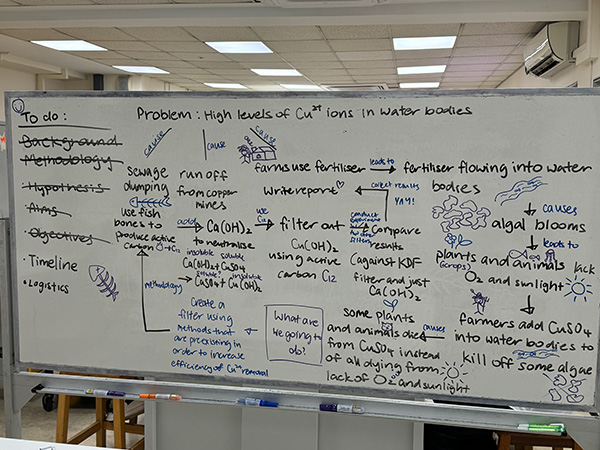 To do:
Background
Methodology
Hypothesis
Aims
Objectives
· Timeline
· Logistics
Problem: High levels of Cu²⁺ ions in water bodies
cause
cause
cause
sewage
dumping
run off
from copper
mines
farms use fertiliser
leads to
fertiliser flowing into water
bodies
causes
algal blooms
leads to
plants and animals lack
(crops)
O₂ and sunlight
farmers add CuSO₄
into water bodies to
kill off some algae
causes
some plants
and animals die
from CuSO₄ instead
of all dying from
lack of O₂ and sunlight
Write report
collect results
YAY!
use fish
bones to
produce active
carbon
add
Ca(OH)₂
to neutralise
insoluble soluble
Ca(OH)₂ + CuSO₄
soluble? insoluble
CaSO₄ + Cu(OH)₂
we
filter out
Cu(OH)₂
using active
carbon C₁₂
conduct
experiment
Compare
results
(against KDF
filter and just
Ca(OH)₂
methodology
Create a
filter using
methods that
are preexisting in
order to increase
efficiency of Cu²⁺ removal
What are
we going to
do?